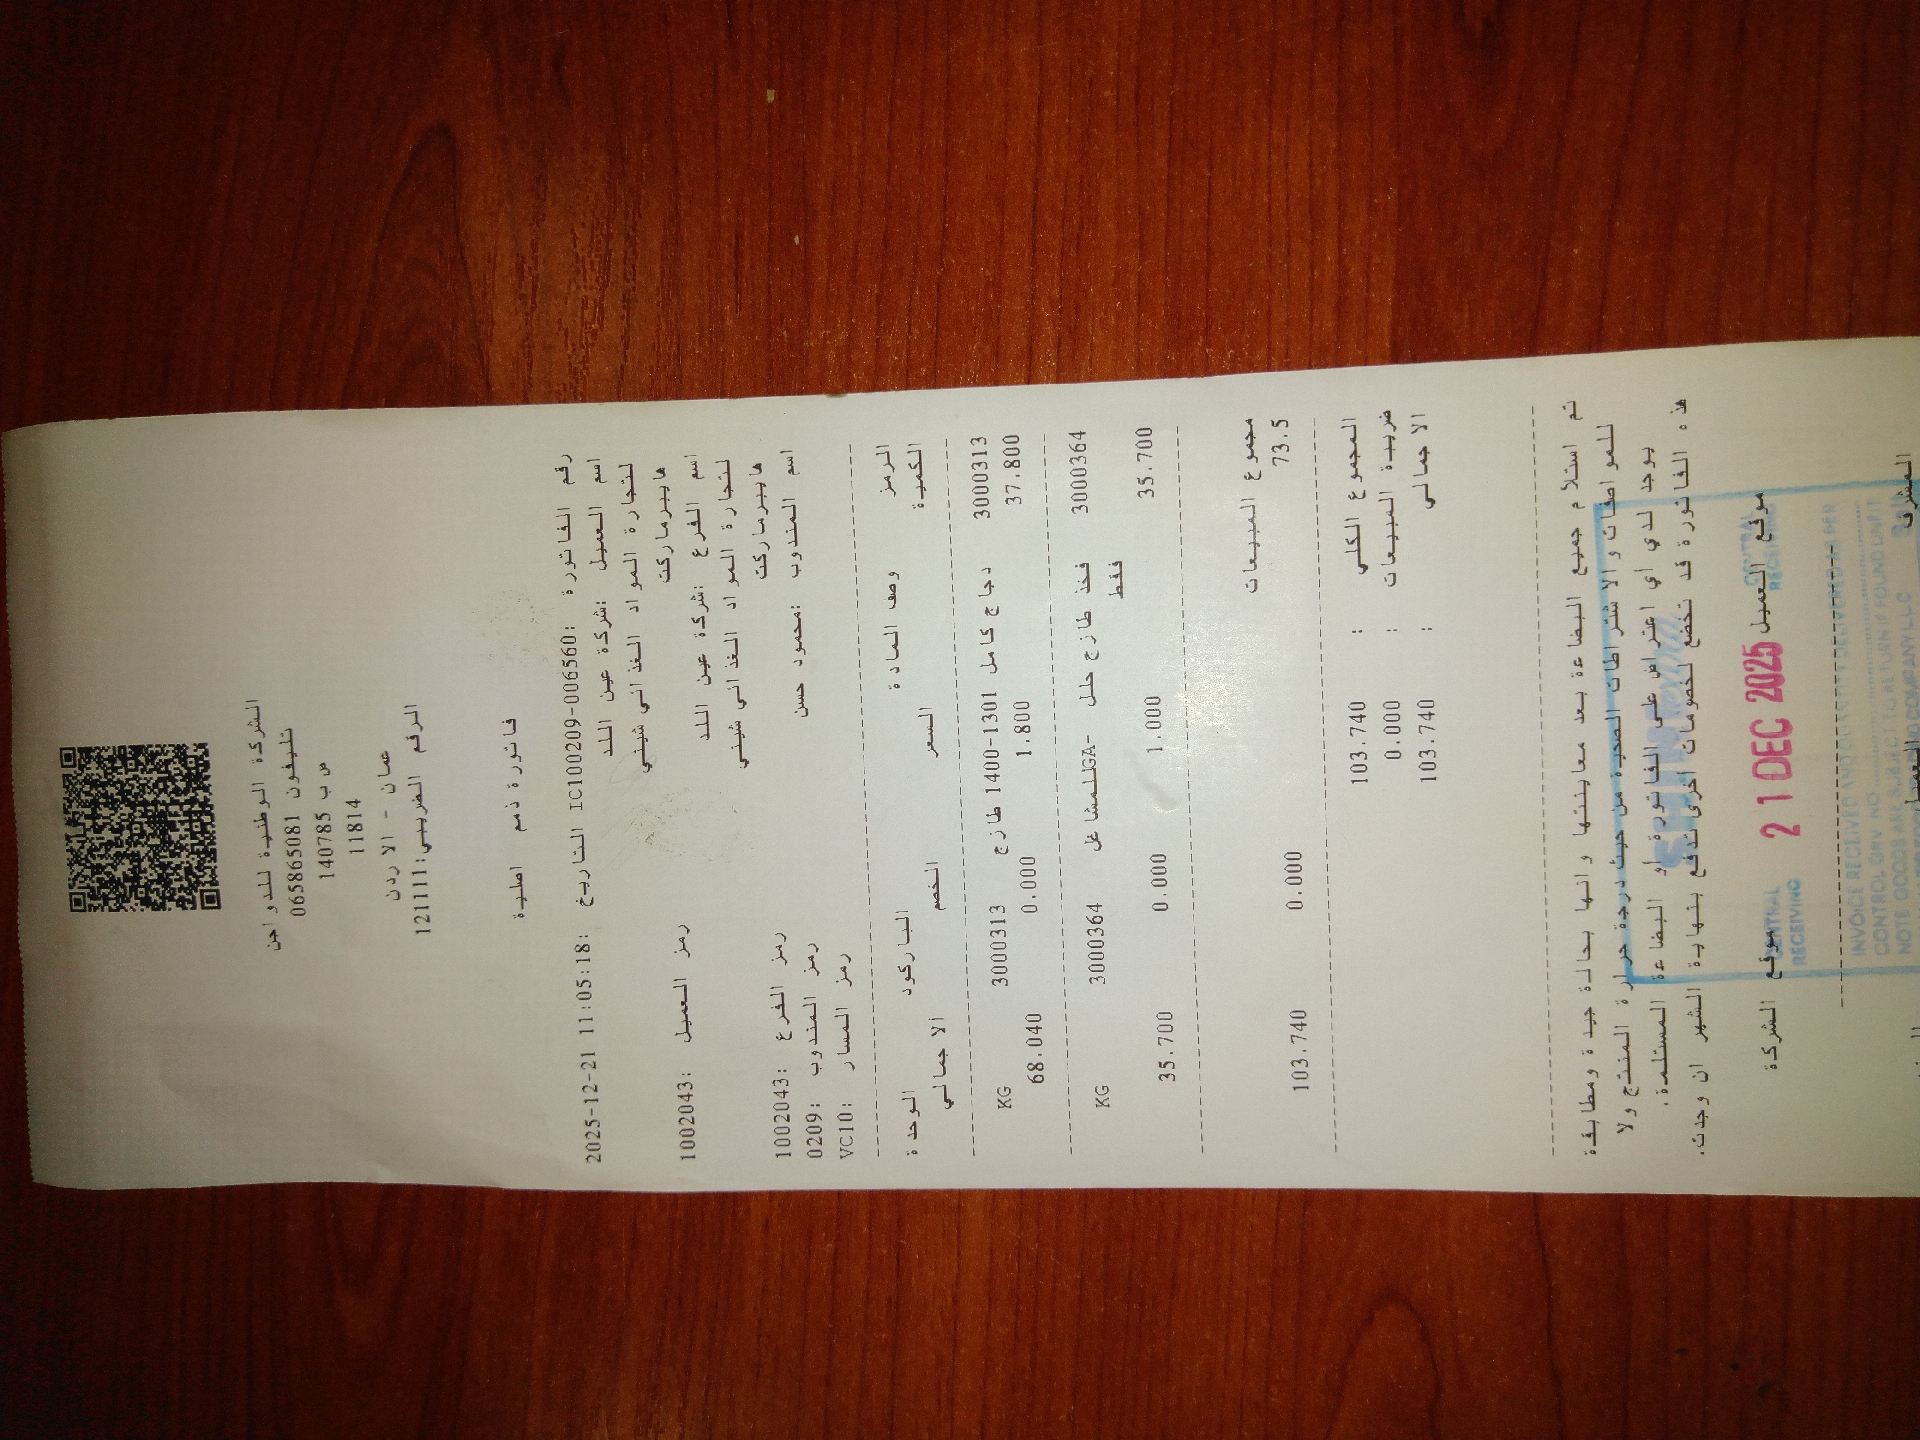 الشركة الوطنية للدواجن
تليفون 065865081
ص ب 140785
11814
عمان - الاردن
الرقم الضريبي:121111
فاتورة ذمم اصلية
رقم الفاتورة :IC100209-006560 التاريخ :2025-12-21 11:05:18
اسم العميل :شركة عين اللد
لتجارة المواد الغذائي شيني
هايبرماركت
رمز العميل :1002043
اسم الفرع :شركة عين اللد
لتجارة المواد الغذائي شيني
هايبرماركت
رمز الفرع :1002043
اسم المندوب :محمود حسن
رمز المندوب :0209
رمز المسار :VC10
الرمز وصف المادة الباركود الوحدة
الكمية السعر الخصم الاجمالي
3000313 دجاج كامل 1301-1400 طازج 3000313 KG
37.800 1.800 0.000 68.040
3000364 فخذ طازج حلل -GAللمشاغل 3000364 KG
فقط
35.700 1.000 0.000 35.700
مجموع المبيعات
73.5 0.000 103.740
المجموع الكلي : 103.740
ضريبة المبيعات : 0.000
الاجمالي : 103.740
تم استلام جميع البضاعة بعد معاينتها وانها بحالة جيدة ومطابقة
للمواصفات والاشتراطات الصحية من حيث درجة حرارة المنتج ولا
يوجد لدي اي اعتراض على الفاتورة او البضاعة المستلمة.
هذه الفاتورة قد تخضع لخصومات اخرى تدفع بنهاية الشهر ان وجدت.
موقع العميل موقع الشركة
CENTRAL
RECEIVING
21 DEC 2025
CENTRAL
RECEIVING
INVOICE RECEIVED AND
CONTROL GRV NO
NOTE GOODS ARE SUBJECT TO RETURN IF FOUND UNFIT
COMPANY LLC
المشرف